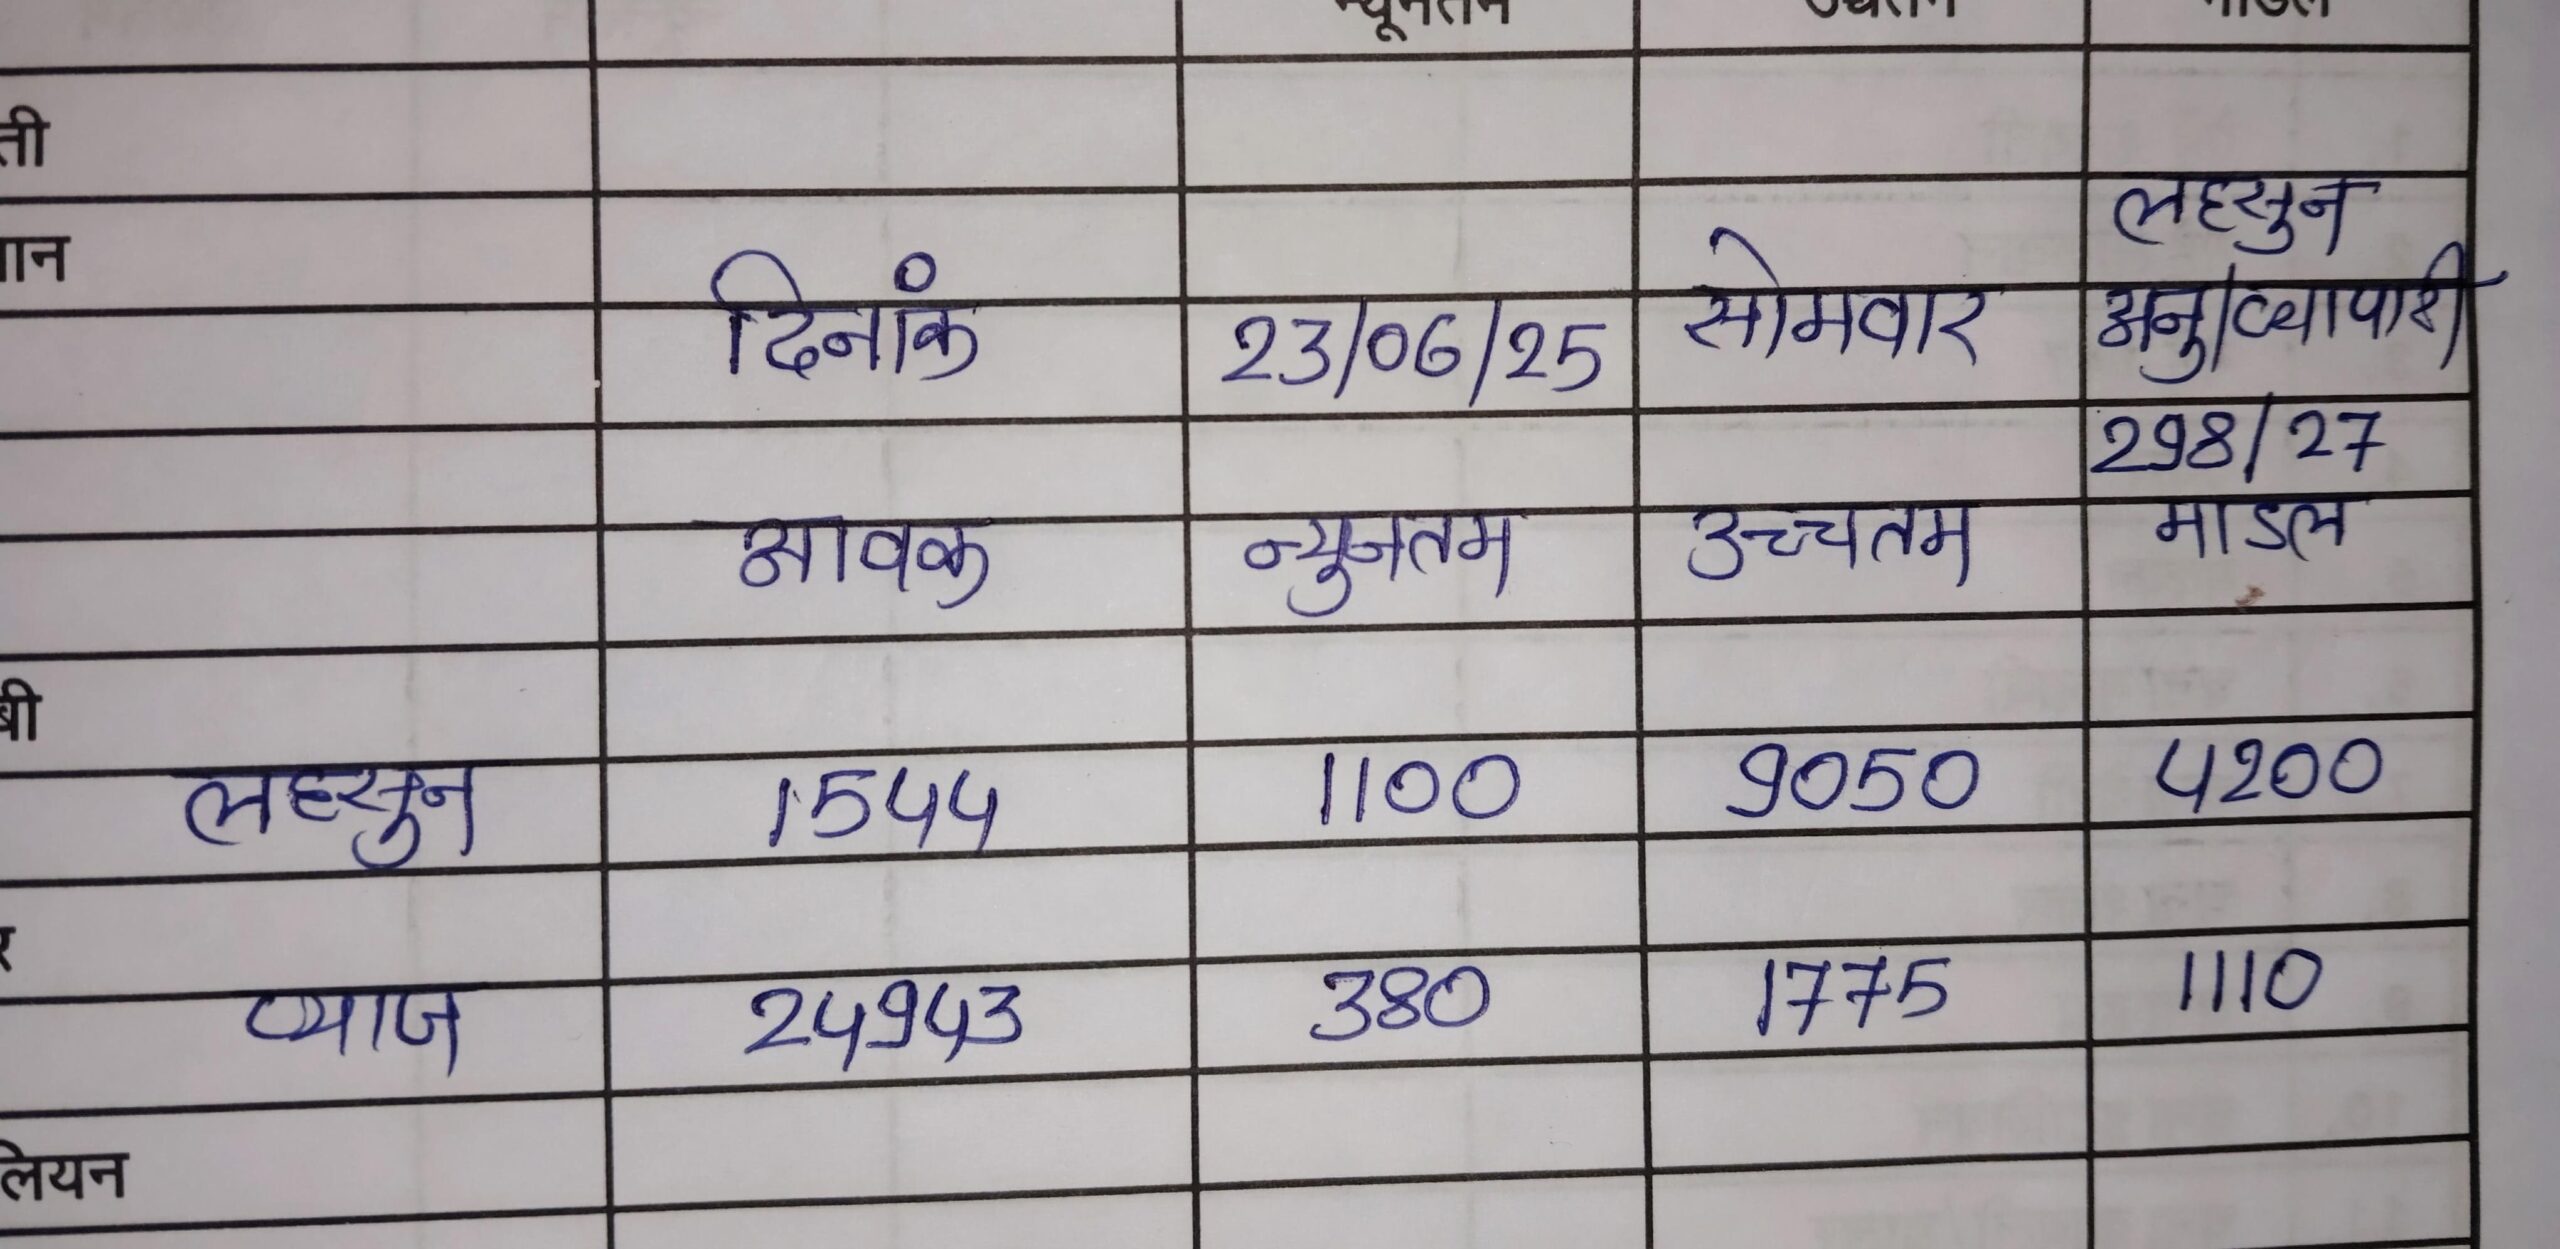 न्यूनतम उच्चतम माडल
ती
मान
लहसुन
दिनांक 23/06/25 सोमवार अनु/व्यापारी
298/27
आवक न्युनतम उच्चतम माडल
बी
लहसुन 1544 1100 9050 4200
र
प्याज 24943 380 1775 1110
लियन